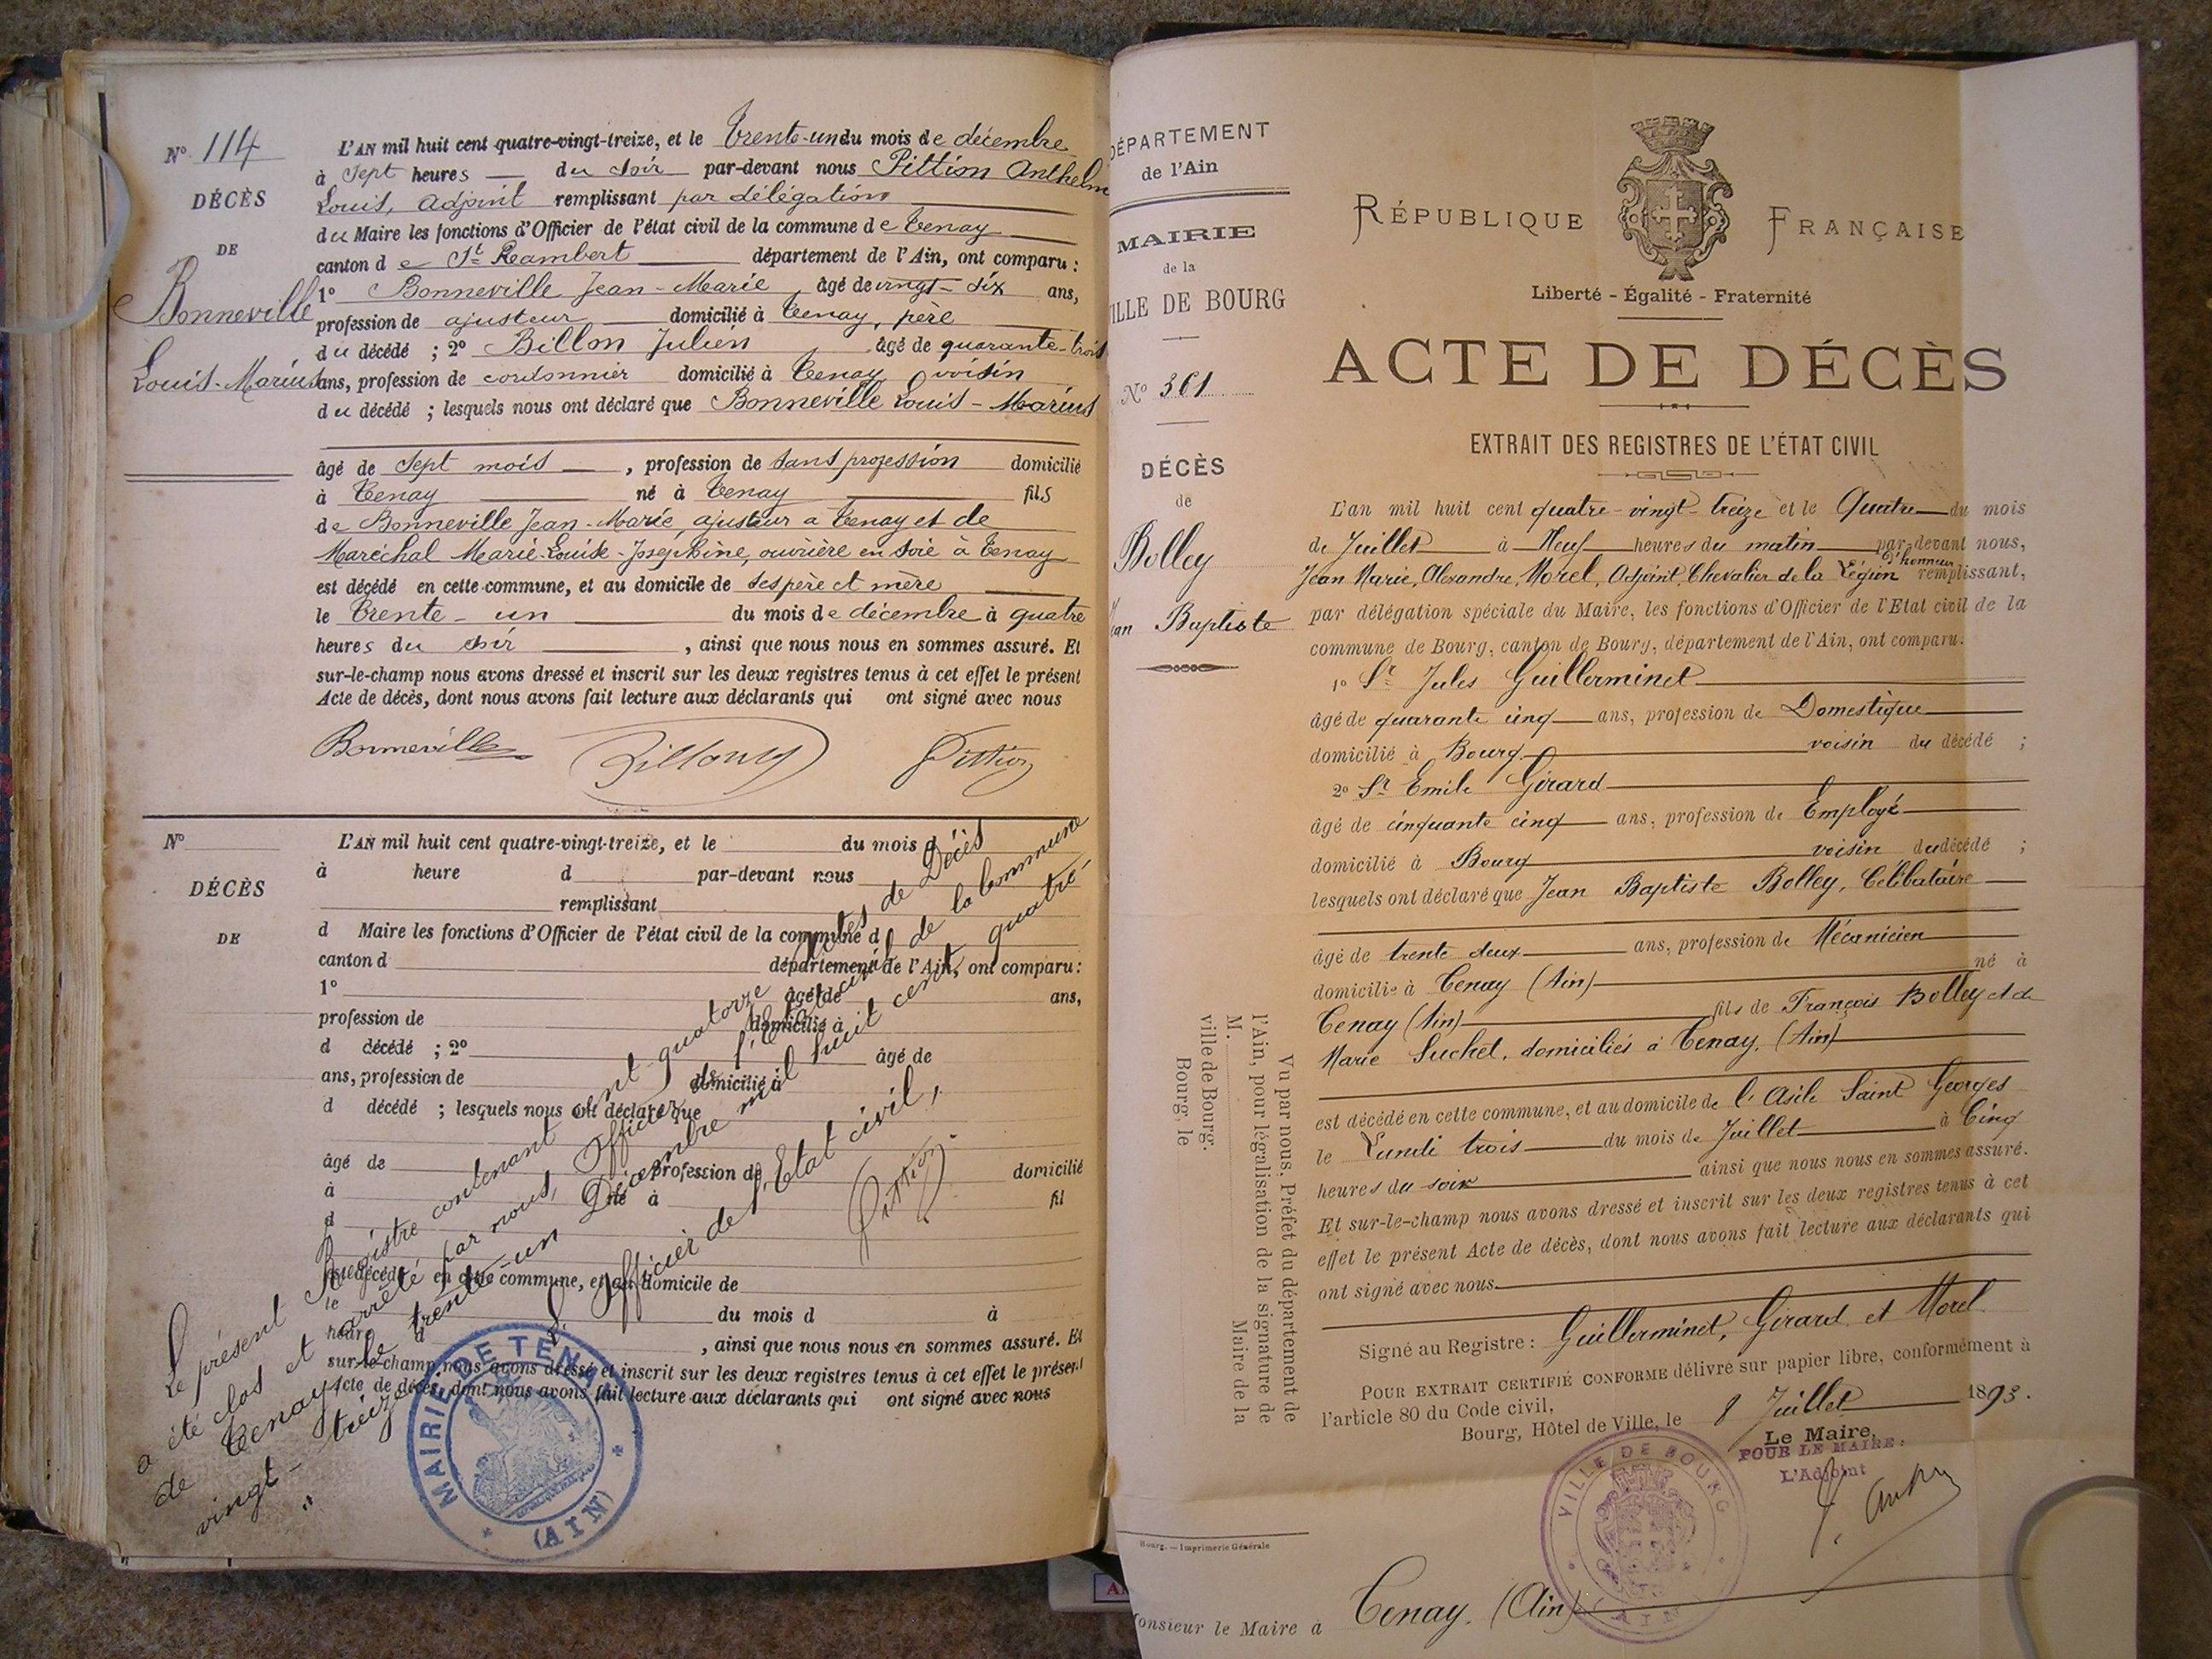 N° 114
DÉCÈS
DE
Bonneville
Louis-Marius
L'AN mil huit cent quatre-vingt-treize, et le trente-un du mois de décembre
à sept heures du soir par-devant nous Pittion Anthelm
Louis, adjoint remplissant par délégation
du Maire les fonctions d'Officier de l'état civil de la commune de Tenay
canton de St Rambert département de l'Ain, ont comparu :
1° Bonneville Jean-Marie, âgé de vingt-six ans,
profession de ajusteur domicilié à Tenay, père
du décédé ; 2° Billon Julien âgé de quarante-trois
ans, profession de cordonnier domicilié à Tenay voisin
du décédé ; lesquels nous ont déclaré que Bonneville Louis-Marius
âgé de sept mois, profession de sans profession domicilié
à Tenay né à Tenay fils
de Bonneville Jean-Marie, ajusteur à Tenay et de
Maréchal Marie-Louise-Joséphine, ouvrière en soie à Tenay
est décédé en cette commune, et au domicile de ses père et mère
le trente-un du mois de décembre à quatre
heures du soir, ainsi que nous nous en sommes assuré. Et
sur-le-champ nous avons dressé et inscrit sur les deux registres tenus à cet effet le présent
Acte de décès, dont nous avons fait lecture aux déclarants qui ont signé avec nous
Bonneville Pittion
N°
DÉCÈS
DE
L'AN mil huit cent quatre-vingt-treize, et le du mois d
à heure d par-devant nous
remplissant
d Maire les fonctions d'Officier de l'état civil de la commune d
canton d département de l'Ain, ont comparu :
1° âgé de ans,
profession de domicilié à
d décédé ; 2° âgé de
ans, profession de domicilié à
d décédé ; lesquels nous ont déclaré que
âgé de profession de domicilié
à né à fil
d
est décédé en cette commune, et au domicile de
le du mois d à
heure d , ainsi que nous nous en sommes assuré. Et
sur-le-champ nous avons dressé et inscrit sur les deux registres tenus à cet effet le présent
Acte de décès, dont nous avons fait lecture aux déclarants qui ont signé avec nous
Le présent Registre contenant cent-quatorze actes de Décès
a été clos et arrêté par nous, Officier de l'Etat civil de la Commune
de Tenay, le trente-un Décembre mil huit cent quatre
vingt-treize
L'Officier de l'Etat civil,
Pittion
MAIRIE DE TENAY
(AIN)
DÉPARTEMENT
de l'Ain
MAIRIE
de la
VILLE DE BOURG
N° 361
DÉCÈS
de
Bolley
Jean Baptiste
RÉPUBLIQUE FRANÇAISE
Liberté - Égalité - Fraternité
ACTE DE DÉCÈS
EXTRAIT DES REGISTRES DE L'ÉTAT CIVIL
L'an mil huit cent quatre-vingt-treize et le Quatre du mois
de Juillet à Neuf heures du matin par-devant nous,
Jean Marie, Alexandre, Morel, Adjoint, Chevalier de la Légion d'honneur remplissant,
par délégation spéciale du Maire, les fonctions d'Officier de l'Etat civil de la
commune de Bourg, canton de Bourg, département de l'Ain, ont comparu:
1° Sr Jules Guillerminet
âgé de quarante cinq ans, profession de Domestique
domicilié à Bourg voisin du décédé ;
2° Sr Emile Girard
âgé de cinquante cinq ans, profession de Employé
domicilié à Bourg voisin du décédé ;
lesquels ont déclaré que Jean Baptiste Bolley, Célibataire
âgé de trente deux ans, profession de Mécanicien
domicilié à Tenay (Ain) né à
Tenay (Ain) fils de François Bolley et de
Marie Suchet, domiciliés à Tenay, (Ain)
est décédé en cette commune, et au domicile de l'Asile Saint Georges
le Lundi trois du mois de Juillet à Cinq
heures du soir ainsi que nous nous en sommes assuré.
Et sur-le-champ nous avons dressé et inscrit sur les deux registres tenus à cet
effet le présent Acte de décès, dont nous avons fait lecture aux déclarants qui
ont signé avec nous.
Signé au Registre : Guillerminet, Girard et Morel
POUR EXTRAIT CERTIFIÉ CONFORME délivré sur papier libre, conformément à
l'article 80 du Code civil,
Bourg, Hôtel de Ville, le 8 Juillet 1893.
Le Maire,
POUR LE MAIRE :
L'Adjoint
VILLE DE BOURG
(AIN)
Vu par nous, Préfet du département de
l'Ain, pour légalisation de la signature de
M. Maire de la
ville de Bourg.
Bourg, le
Bourg. — Imprimerie Générale
Monsieur le Maire à Tenay. (Ain)